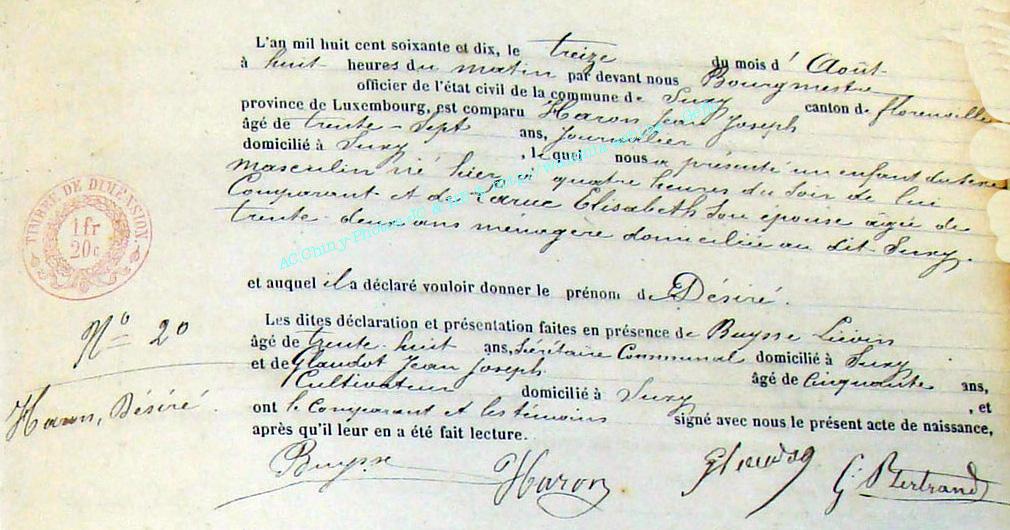 L'an mil huit cent soixante et dix, le treize du mois d'Août
à huit heures du matin par devant nous Bourgmestre
officier de l'état civil de la commune de Suxy canton de florenville
province de Luxembourg, est comparu Haron Jean Joseph
âgé de trente-Sept ans, Journalier
domicilié à Suxy, lequel nous a présenté un enfant du sexe
masculin né hier à quatre heures du soir de lui
Comparant et de Laruc Elisabeth son épouse âgée de
trente-deux ans ménagère domiciliée au dit Suxy.
et auquel il a déclaré vouloir donner le prénom de Désiré.
Les dites déclaration et présentation faites en présence de Buysse Liévin
âgé de trente-huit ans, Sécrétaire Communal domicilié à Suxy
et de Glaudot Jean Joseph âgé de Cinquante ans,
Cultivateur domicilié à Suxy, et
ont le Comparant et les témoins signé avec nous le présent acte de naissance,
après qu'il leur en a été fait lecture.
Buysse Haron Glaudot G. Bertrand
TIMBRE DE DIMENSION
1 fr
20 c
N° 20
Haron, Désiré.
AC Chiny Photo